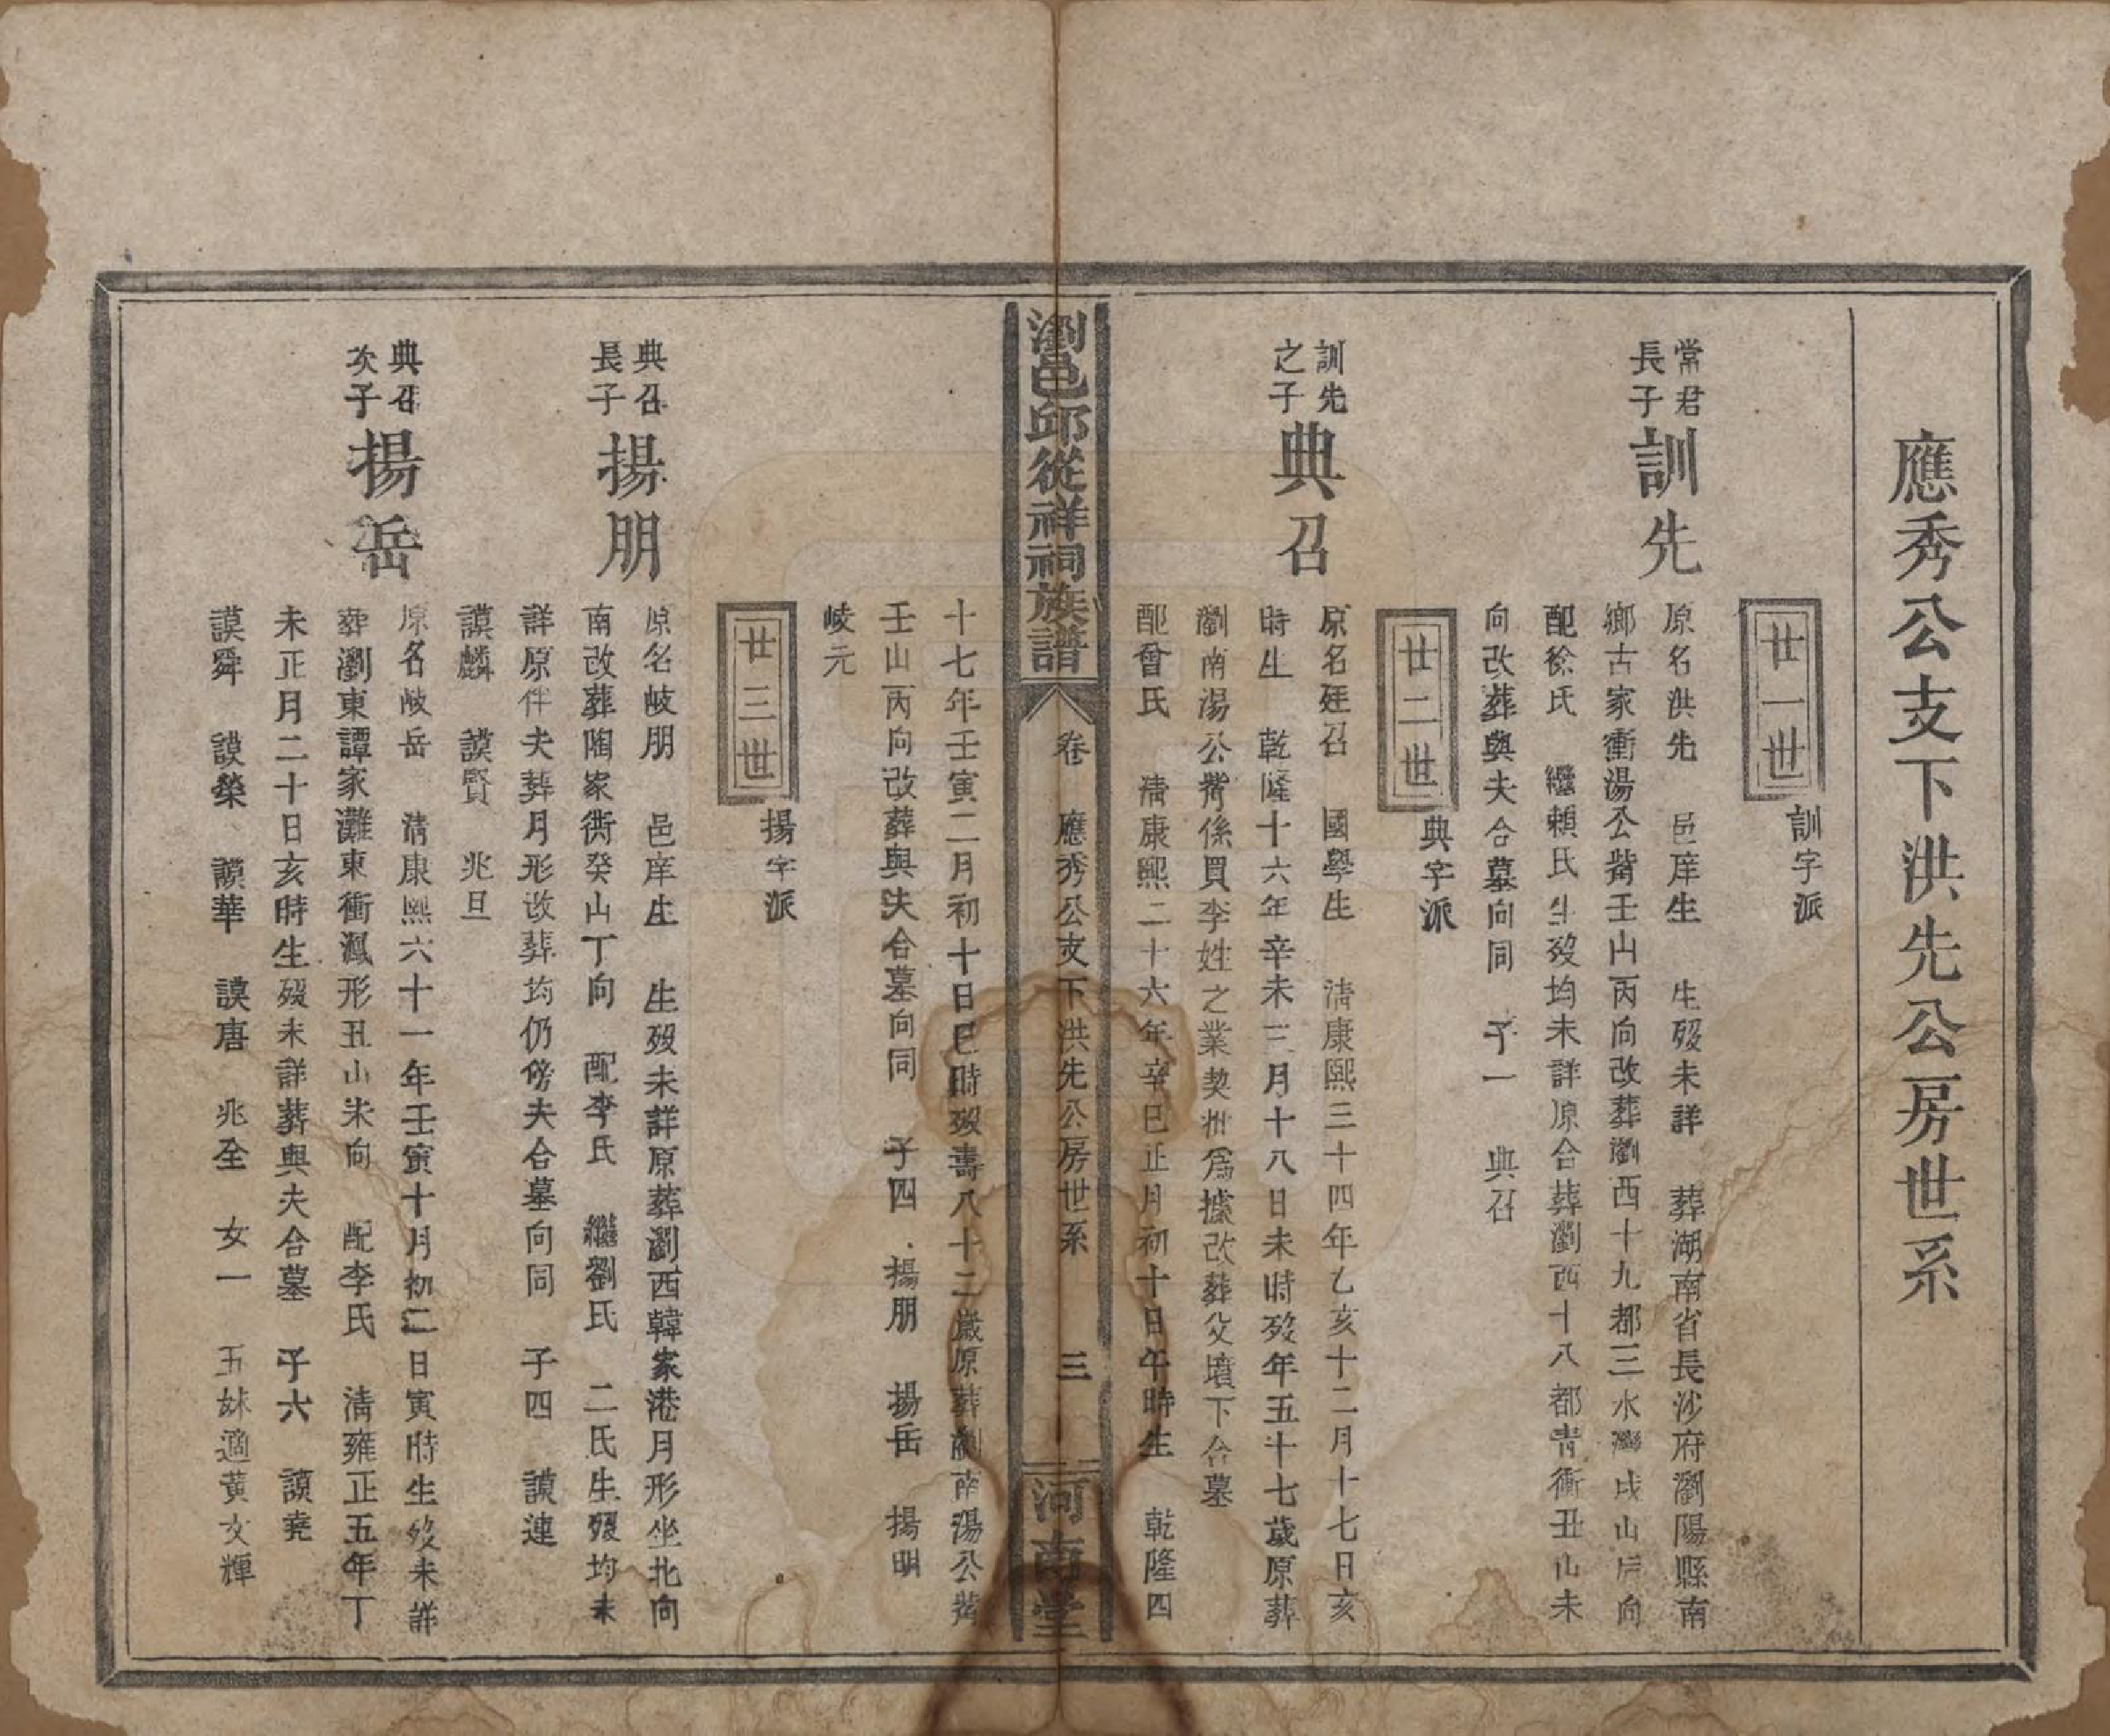 應秀公支下洪先公房世系
廿一世
訓字派
常君
長子
訓先
原名洪先　邑庠生　生歿未詳　葬湖南省長沙府瀏陽縣南
鄉古家衝湯公嘴壬山丙向改葬瀏西十九都三水灣戌山辰向
配徐氏　繼賴氏生歿均未詳原合葬瀏西十八都青衝丑山未
向改葬與夫合墓向同　子一　典召
廿二世
典字派
訓先
之子
典召
原名廷召　國學生　清康熙三十四年乙亥十二月十七日亥
時生　乾隆十六年辛未三月十八日未時歿年五十七歲原葬
瀏南湯公嘴係買李姓之業契批爲據改葬父墳下合墓
配曾氏　清康熙二十六年辛巳正月初十日午時生　乾隆四
瀏邑邱從祥祠族譜
卷　應秀公支下洪先公房世系　三
河南堂
十七年壬寅二月初十日巳時歿壽八十二歲原葬瀏南湯公嘴
壬山丙向改葬與夫合墓向同　子四　揚朋　揚岳　揚明
崚元
廿三世
揚字派
典召
長子
揚朋
原名岐朋　邑庠生　生歿未詳原葬瀏西韓家港月形坐北向
南改葬陶家衖癸山丁向　配李氏　繼劉氏　二氏生歿均未
詳原伴夫葬月形改葬均仍傍夫合墓向同　子四　謨連
謨麟　謨賢　兆旦
典召
次子
揚岳
原名岐岳　清康熙六十一年壬寅十月初二日寅時生歿未詳
葬瀏東譚家灘東衝瀙形丑山未向　配李氏　清雍正五年丁
未正月二十日亥時生歿未詳葬與夫合墓　子六　謨堯
謨舜　謨榮　謨華　謨唐　兆全　女一　五妹適黃文輝